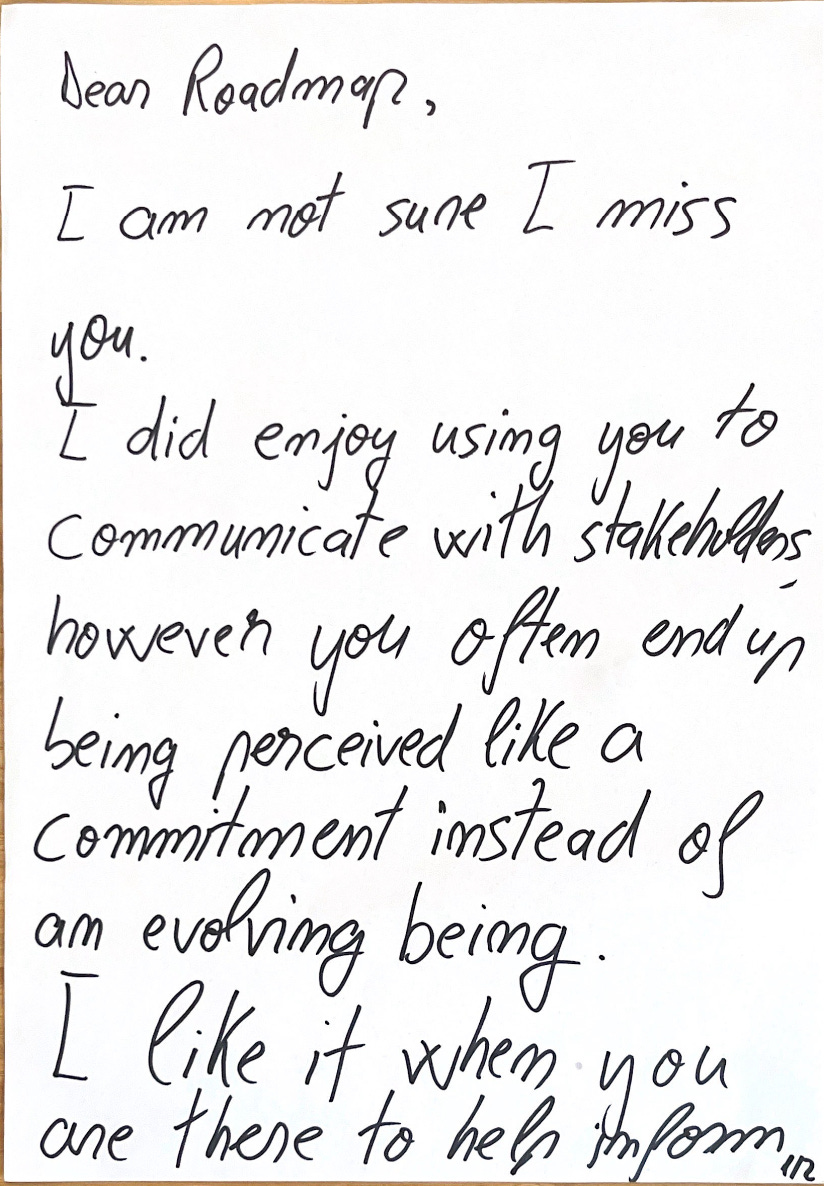 Dear Roadmap,
I am not sure I miss
you.
I did enjoy using you to
communicate with stakeholders,
however you often end up
being perceived like a
commitment instead of
an evolving being.
I like it when you
are there to help inform
1/2